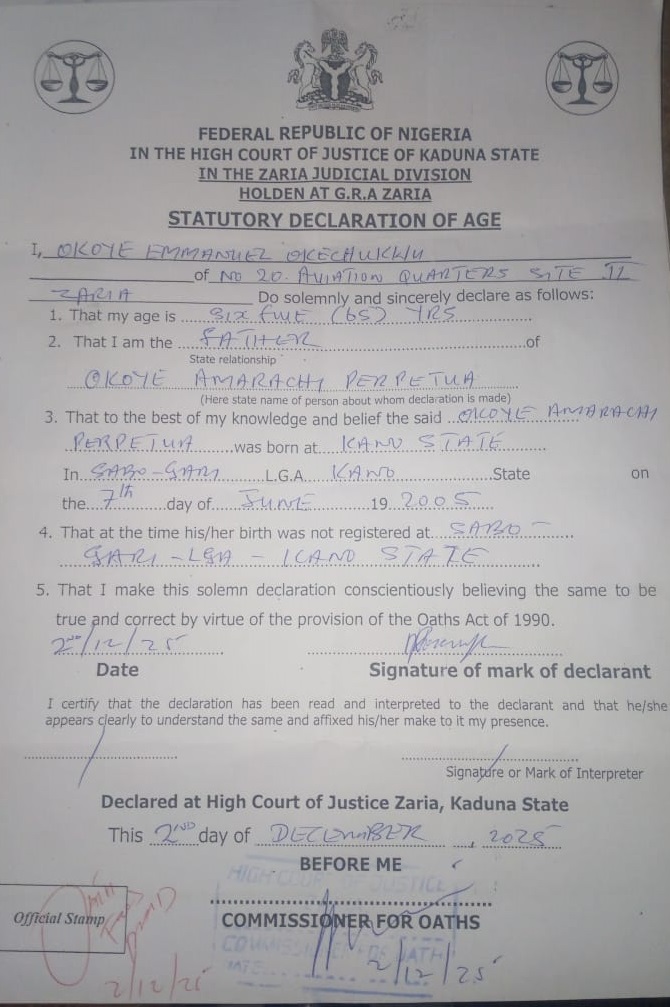 FEDERAL REPUBLIC OF NIGERIA
IN THE HIGH COURT OF JUSTICE OF KADUNA STATE
IN THE ZARIA JUDICIAL DIVISION
HOLDEN AT G.R.A ZARIA
STATUTORY DECLARATION OF AGE
I, OKOYE EMMANUEL OKECHUKWU
of NO 20. AVIATION QUARTERS SITE II
ZARIA Do solemnly and sincerely declare as follows:
1. That my age is SIX FIVE (65) YRS
2. That I am the FATHER of
State relationship
OKOYE AMARACHI PERPETUA
(Here state name of person about whom declaration is made)
3. That to the best of my knowledge and belief the said OKOYE AMARACHI
PERPETUA was born at KANO STATE
In SABO-GARI L.G.A KANO State on
the 7th day of JUNE 19 2005
4. That at the time his/her birth was not registered at SABO -
GARI - LGA - KANO STATE
5. That I make this solemn declaration conscientiously believing the same to be
true and correct by virtue of the provision of the Oaths Act of 1990.
2nd/12/25
Date Signature of mark of declarant
I certify that the declaration has been read and interpreted to the declarant and that he/she
appears clearly to understand the same and affixed his/her make to it my presence.
Signature or Mark of Interpreter
Declared at High Court of Justice Zaria, Kaduna State
This 2ND day of DECEMBER, 2025
BEFORE ME
HIGH COURT OF JUSTICE
Official Stamp
COMMISSIONER FOR OATHS
COMMISSIONER OATH
DATE
2/12/25
2/12/25